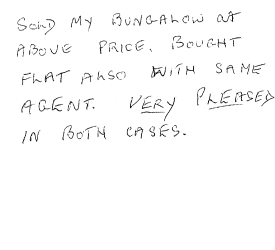 SOLD MY BUNGALOW AT
ABOVE PRICE. BOUGHT
FLAT ALSO WITH SAME
AGENT. VERY PLEASED
IN BOTH CASES.